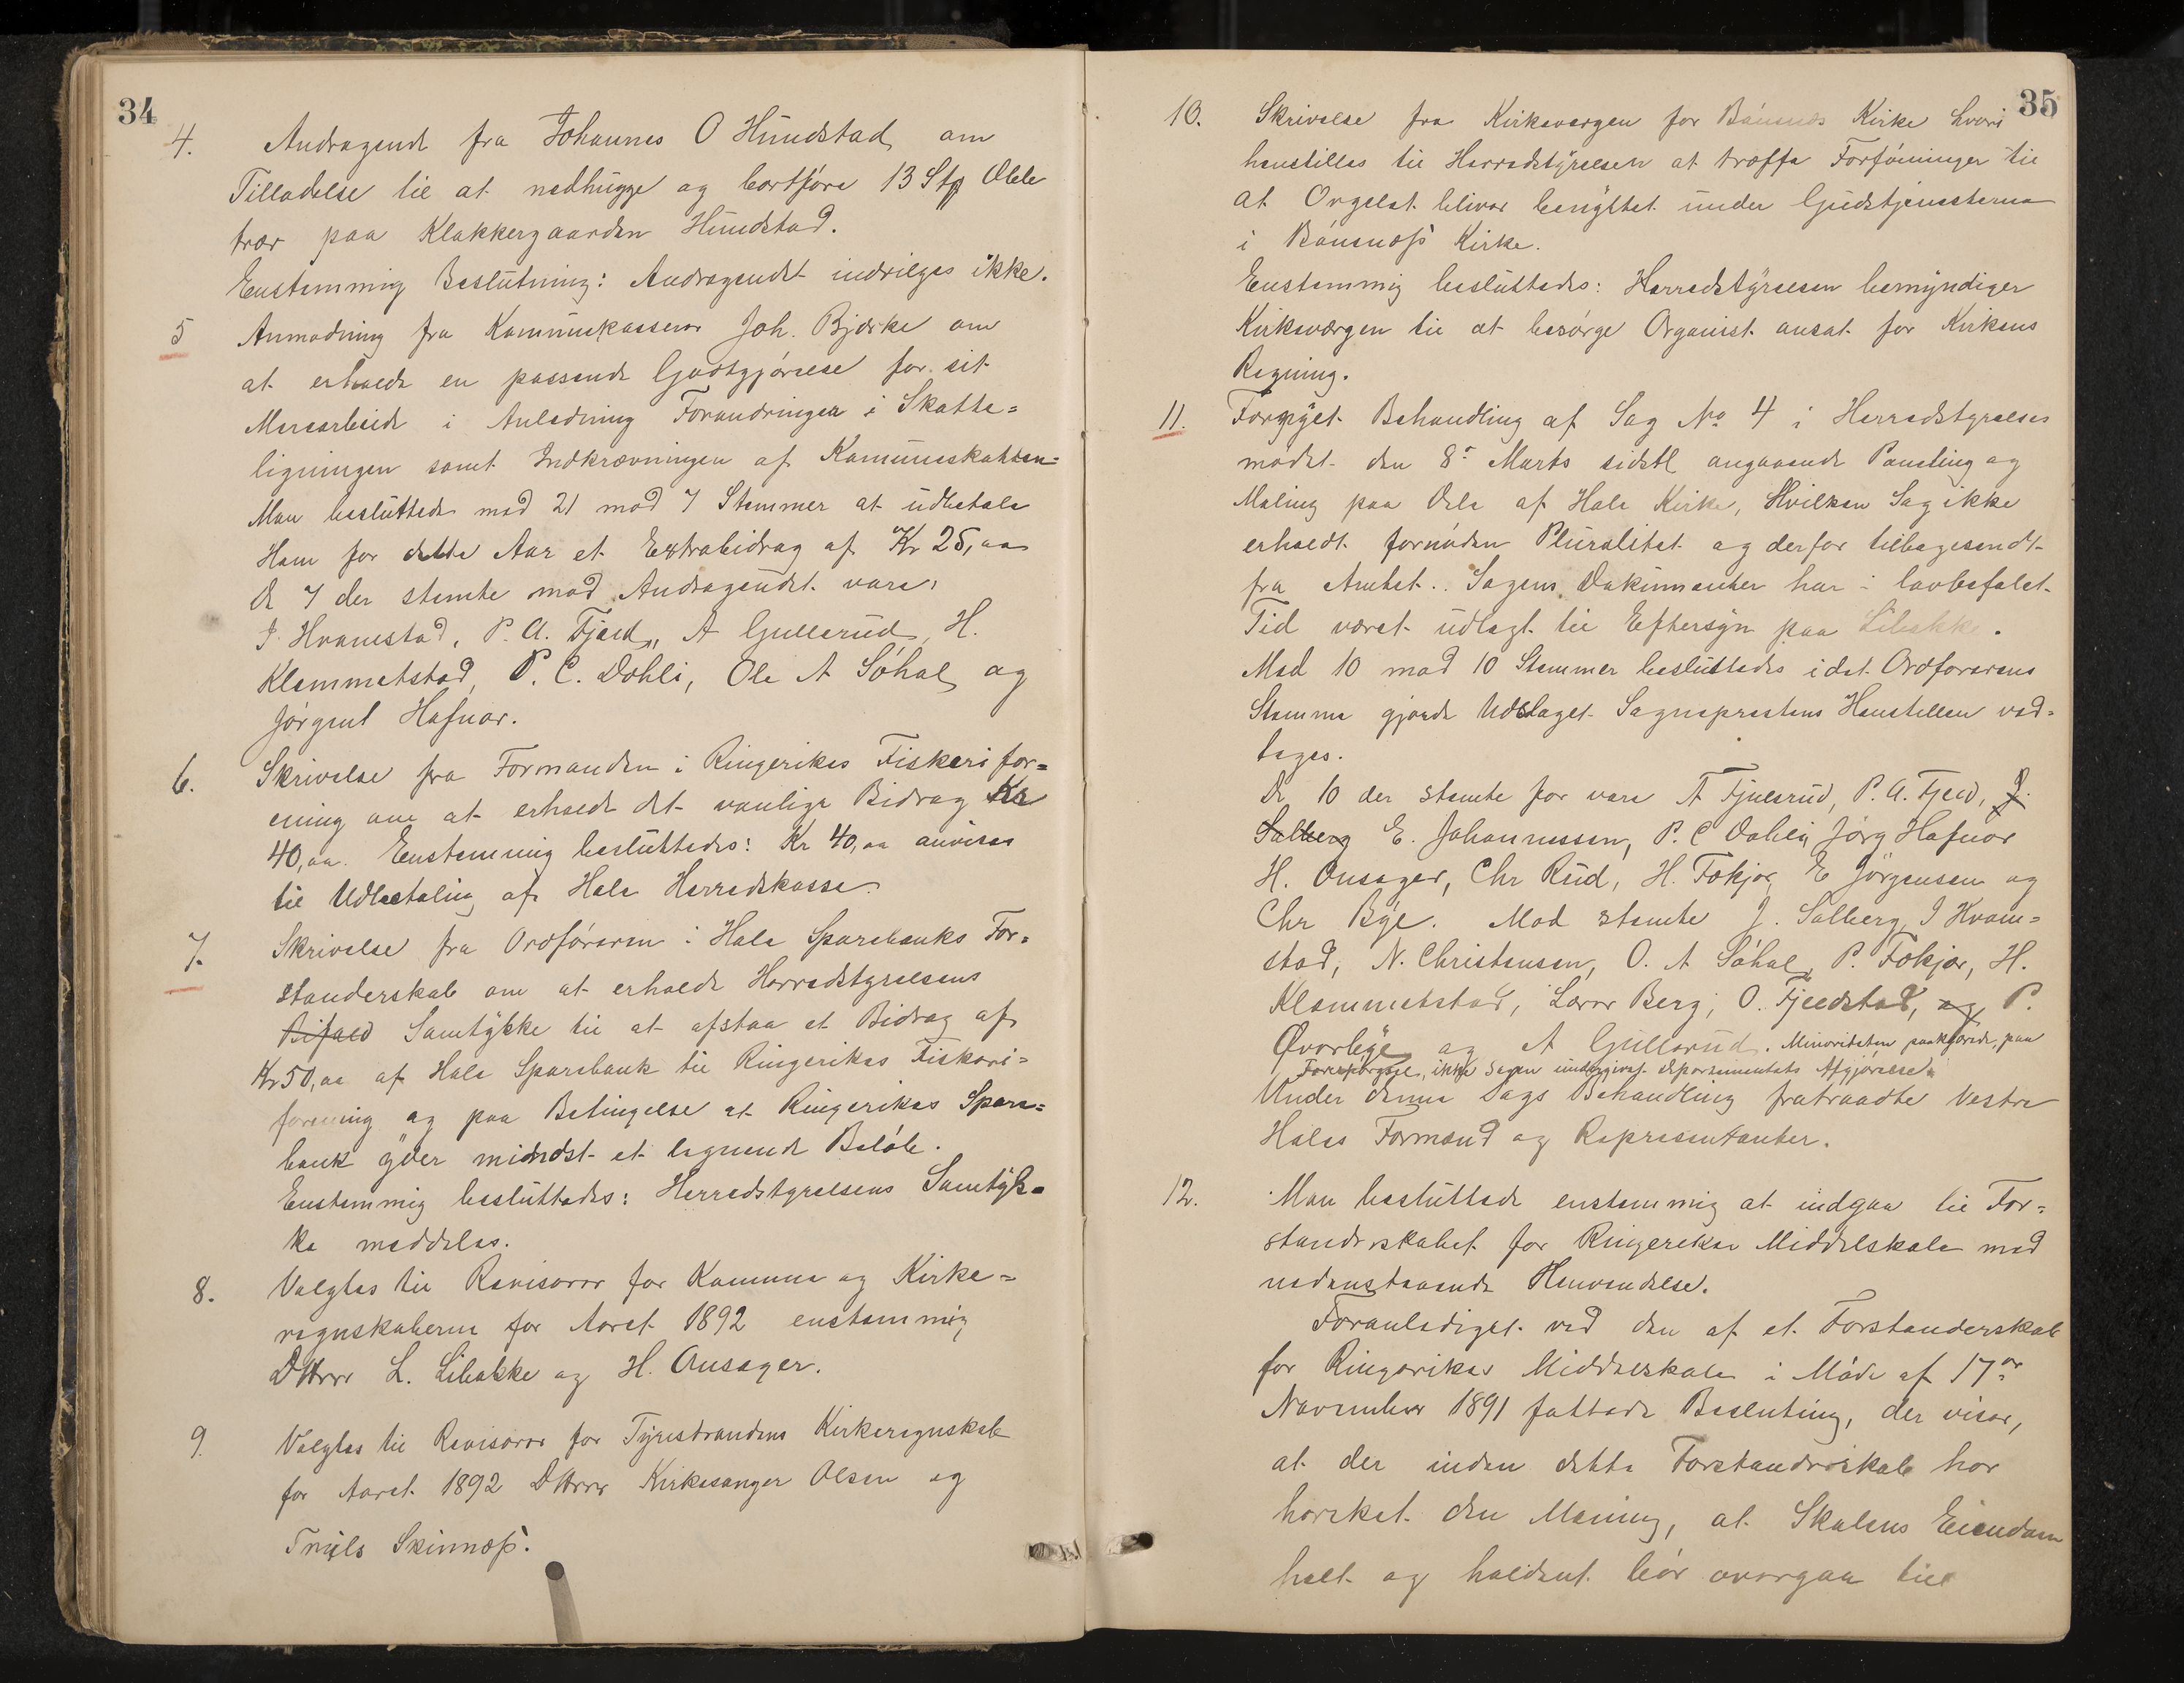 34
4. Andragende fra Johannes O Hundstad om
Tilladelse til at nedhugge og bortføre 13 Stp Older
trær paa Klokkergaarden Hundstad.
Enstemmig Beslutning: Andragendet indvilges ikke.
5 Anmodning fra Kommunekasserer Joh. Bjørke om
at erholde en passende Godtgjørelse for sit
Merarbeide i Anledning Forandringen i Skatte=
ligningen samt Indkrævningen af Kommuneskatten=
Man besluttede med 21 mod 7 Stemmer at udbetale
Ham for dette Aar et Extrabidrag af Kr 25,00
De 7 der stemte mod Andragendet vare,
I. Hvamstad, P. A. Fjeld, A Gullerud, H.
Klemmetstad, P. C. Dahli, Ole A Söhol og
Jørgent Hafnor.
6. Skrivelse fra Formanden i Ringerikes Fiskerifor=
ening om at erholde det vanlige Bidrag Kr
40,00. Enstemmig besluttedes: Kr 40,00 anvises
til Udbetaling af Hole Herredskasse.
7. Skrivelse fra Ordføreren i Hole Sparebanks For=
standerskab om at erholde Herredstyrelsens
Bifald Samtykke til at afstaa et Bidrag af
Kr 50,00 af Hole Sparebank til Ringerikes Fiskeri=
forening og paa Betingelse at Ringerikes Spare=
bank yder mindst et lignende Beløb.
Enstemmig besluttedes: Herredstyrelsens Samtyk=
ke meddeles.
8. Valgtes til Revisorer for Kommune og Kirke=
regnskaberne for Aaret 1892 enstemmig
DHrrr L. Libakke og H. Onsager.
9. Valgtes til Revisorer for Tyristrandens Kirkeregnskab
for Aaret 1892 DHrrr Kirkesanger Olsen og
Truls Skinnæs.
35
10. Skrivelse fra Kirkeværgen for Bønsnæs Kirke hvori
henstilles til Herredstyrelsen at træffe Forføininger til
at Orgelet bliver benyttet under Gudstjenesterne
i Bønsnæss Kirke.
Enstemmig besluttedes: Herredstyrelsen bemyndiger
Kirkeværgen til at besørge Organist ansat for Kirkens
Regning.
11. Fornyet Behandling af Sag No 4 i Herredstyrelses
mødet den 8de Marts sidstl angaaende Paneling og
Maling paa Dele af Hole Kirke, Hvilken Sag ikke
erholdt fornøden Pluralitet og derfor tilbagesendt
fra Amtet. Sagens Dokumenter har i lovbefalet
Tid været udlagt til Eftersyn paa Libakke.
Med 10 mod 10 Stemmer besluttedes idet Ordførerens
Stemme gjorde Udslaget Sogneprestens Henstillen ved=
tages.
De 10 der stemte for vare A Fjulsrud, P. A. Fjeld, J.
Solberg E. Johannessen, P. C Dahli, Jørg Hafnor
H. Onsager, Chr Rud, H. Fekjær E Jørgensen og
Chr Bye. Mod stemte J. Solberg, I Hvam=
stad, N. Christensen, O. A Søhol, P. Fekjær, H.
Klemmetstad, Lærer Berg, O. Fjeldstad, og P.
Øverbye og A Gullerud. Minoriteten paaklarede, paa
Forespørgsel, ikke Sagen undergivet departementets Afgjørelse.
Under denne Sags Behandling fratraadte Vestre
Holes Formænd og Repræsentanter.
12. Man besluttede enstemmig at indgaa til For=
standerskabet for Ringerikes Middelskole med
nedenstaaende Henvendelse.
Foranlediget ved den af et Forstanderskab
for Ringerikes Middelskole i Møde af 17de
November 1891 fattede Beslutning, der viser,
at der inden dette Forstanderskab har
hersket den Mening, at Skolens Eiendom
helt og holdent bør overgaa til